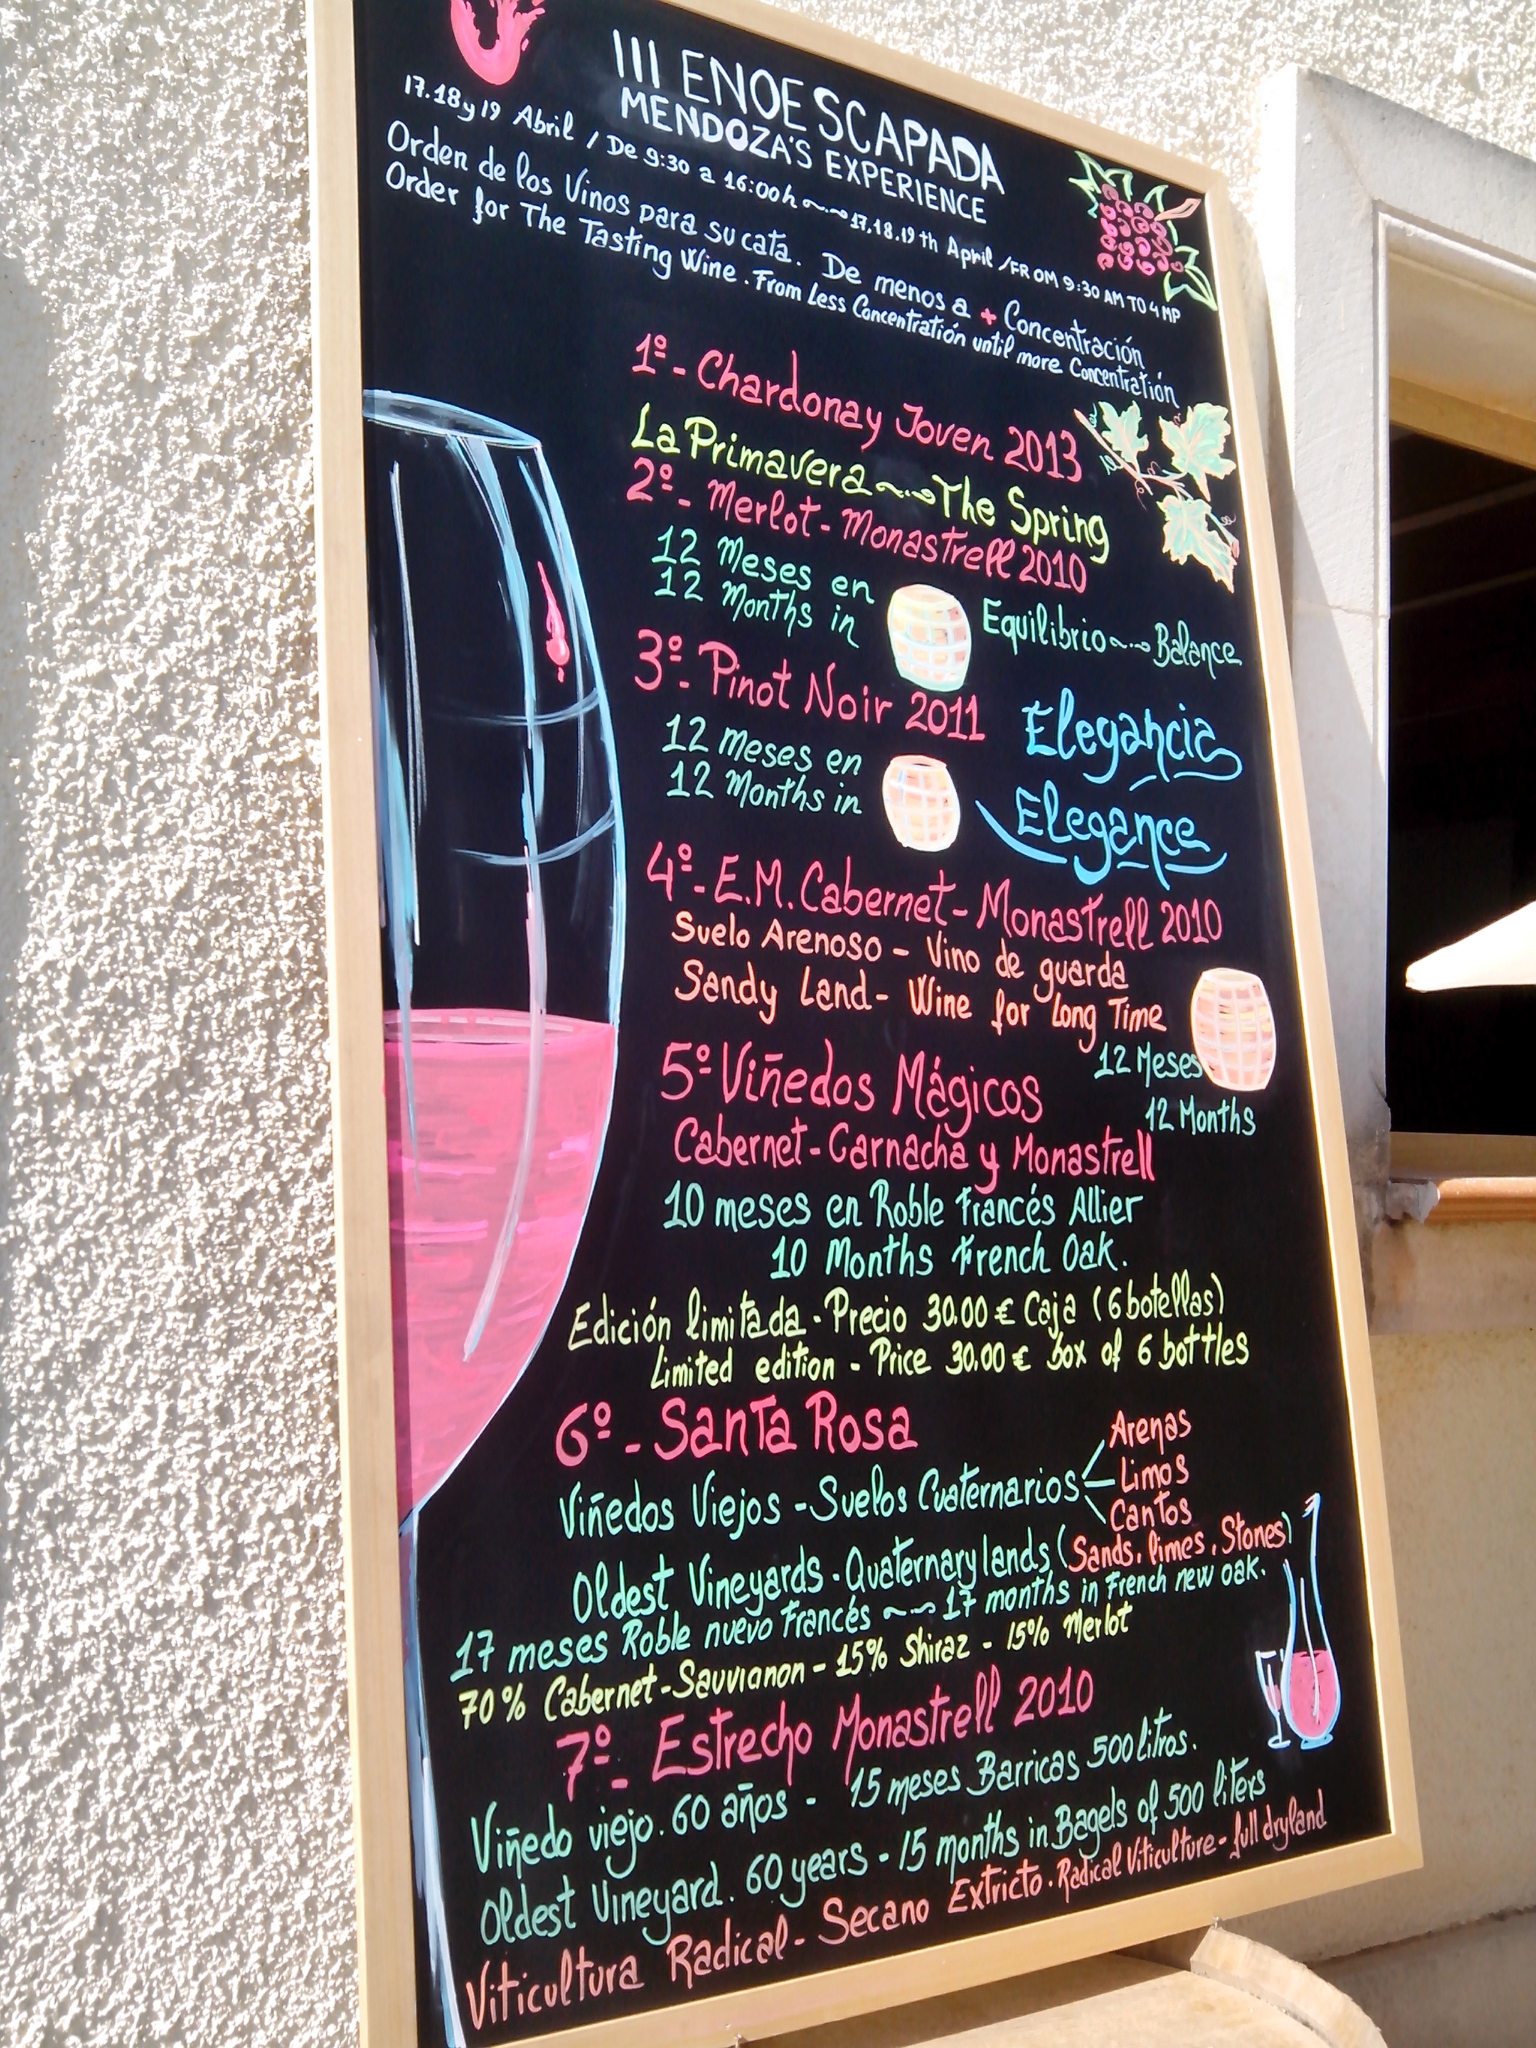 III ENOESCAPADA
MENDOZA'S EXPERIENCE
17.18 y 19 Abril / De 9:30 a 16:00h ~ 17.18.19 th April / FROM 9:30 AM TO 4 MP
Orden de los Vinos para su cata. De menos a + Concentración
Order for The Tasting Wine. From Less Concentratión until more Concentratión
1º- Chardonay Joven 2013
La Primavera ~ The Spring
2º- Merlot - Monastrell 2010
12 Meses en
12 Months in
Equilibrio ~ Balance
3º- Pinot Noir 2011
12 meses en
12 Months in
Elegancia
Elegance
4º- E.M. Cabernet - Monastrell 2010
Suelo Arenoso - Vino de guarda
Sandy Land - Wine for Long Time
12 Meses
12 Months
5º Viñedos Mágicos
Cabernet - Garnacha y Monastrell
10 meses en Roble Francés Allier
10 Months French Oak.
Edición limitada - Precio 30.00 € Caja (6 botellas)
Limited edition - Price 30.00 € box of 6 bottles
6º - Santa Rosa
Viñedos Viejos - Suelos Cuaternarios
Arenas
Limos
Cantos
Oldest Vineyards. Quaternary lands (Sands, limes, Stones)
17 meses Roble nuevo Francés ~ 17 months in French new oak.
70% Cabernet-Sauvianon - 15% Shiraz - 15% Merlot
7º- Estrecho Monastrell 2010
Viñedo viejo. 60 años - 15 meses Barricas 500 litros.
Oldest Vineyard. 60 years - 15 months in Bagels of 500 liters
Viticultura Radical - Secano Extricto. Radical Viticulture - full dryland